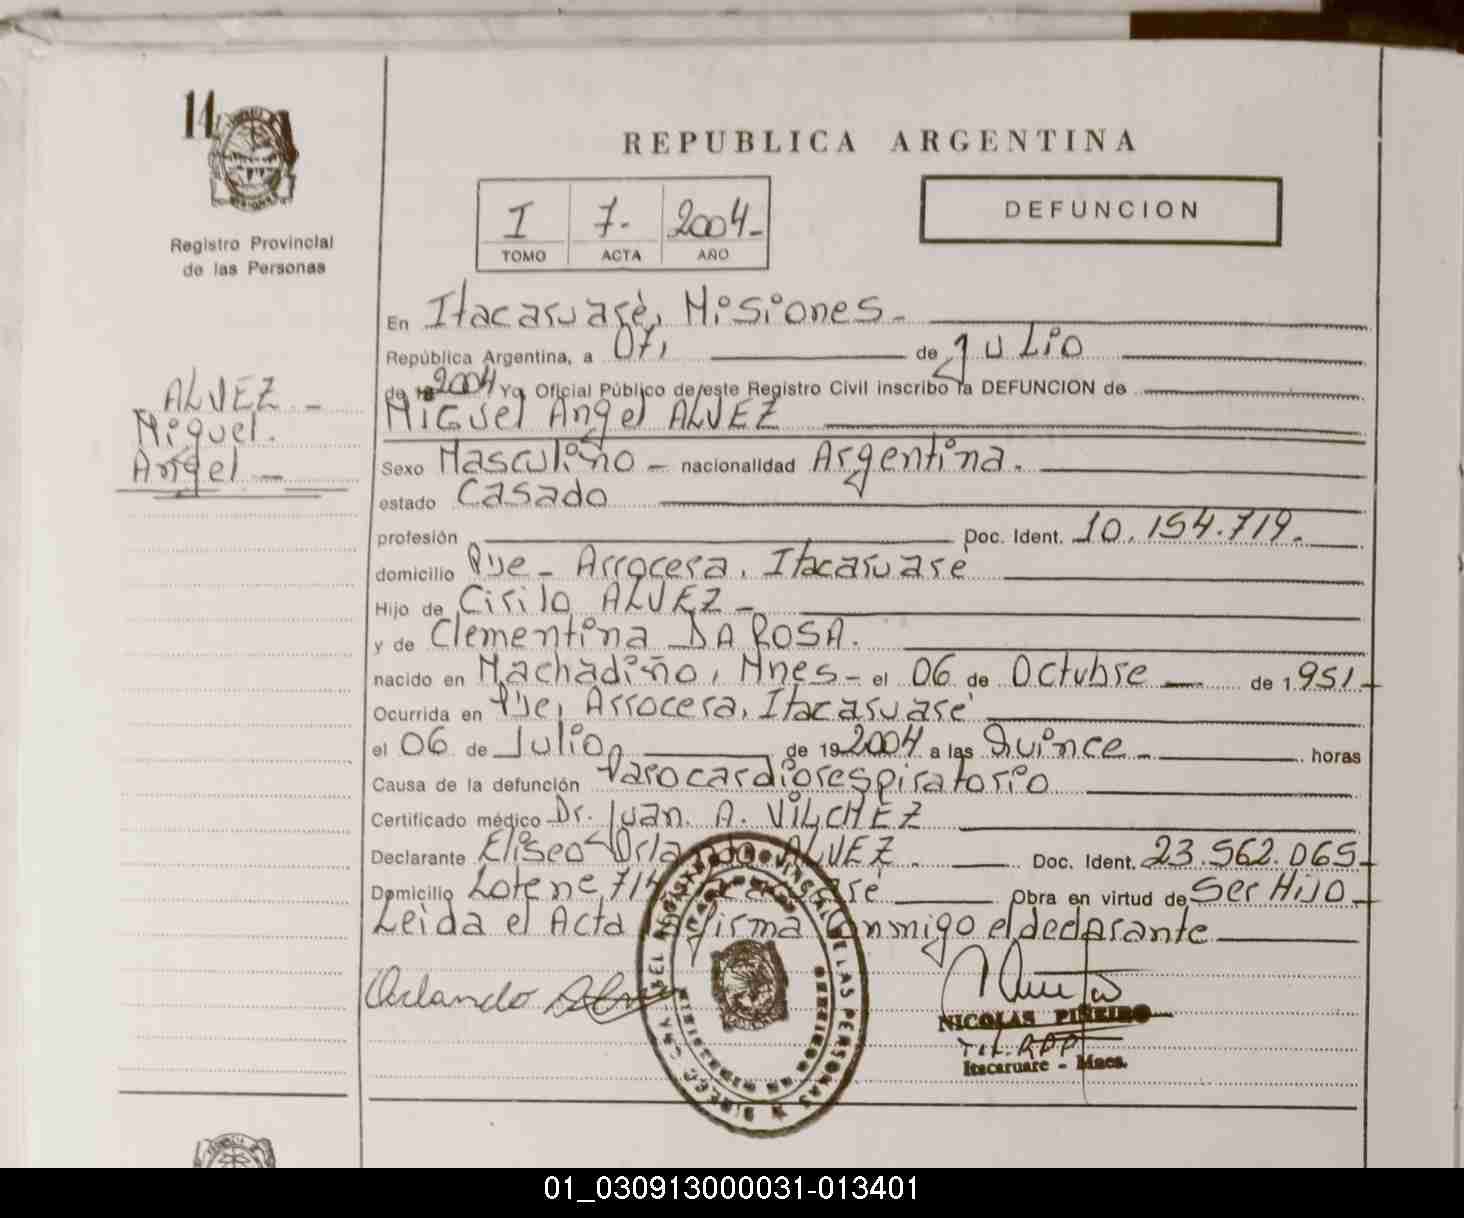 11
Registro Provincial
de las Personas
ALVEZ -
Miguel.
Angel -
REPUBLICA ARGENTINA
I 7- 2004-
TOMO ACTA AÑO
DEFUNCION
En Itacaruaré, Misiones.-
República Argentina, a 07, de Julio
de 2004 Yo Oficial Público de este Registro Civil inscribo la DEFUNCION de
Miguel Angel ALVEZ
Sexo Masculino - nacionalidad Argentina.
estado Casado
profesión Doc. Ident. 10.154.719.
domicilio Pje - Arrocera, Itacaruaré
Hijo de Cirilo ALVEZ -
y de Clementina DA ROSA.
nacido en Machadiño, Mnes - el 06 de Octubre de 1.951.
Ocurrida en Pje, Arrocera, Itacaruaré
el 06 de Julio de 19 2004 a las Quince - horas
Causa de la defunción Parocardiorespiratorio
Certificado médico Dr. Juan. A. VILCHEZ
Declarante Eliseo ALVEZ. Doc. Ident. 23.562.065
Domicilio Obra en virtud de Ser Hijo
Leida el Acta firma conmigo el declarante
Orlando
NICOLAS PIÑEIRO
Itacaruare - Mnes.
01_030913000031-013401